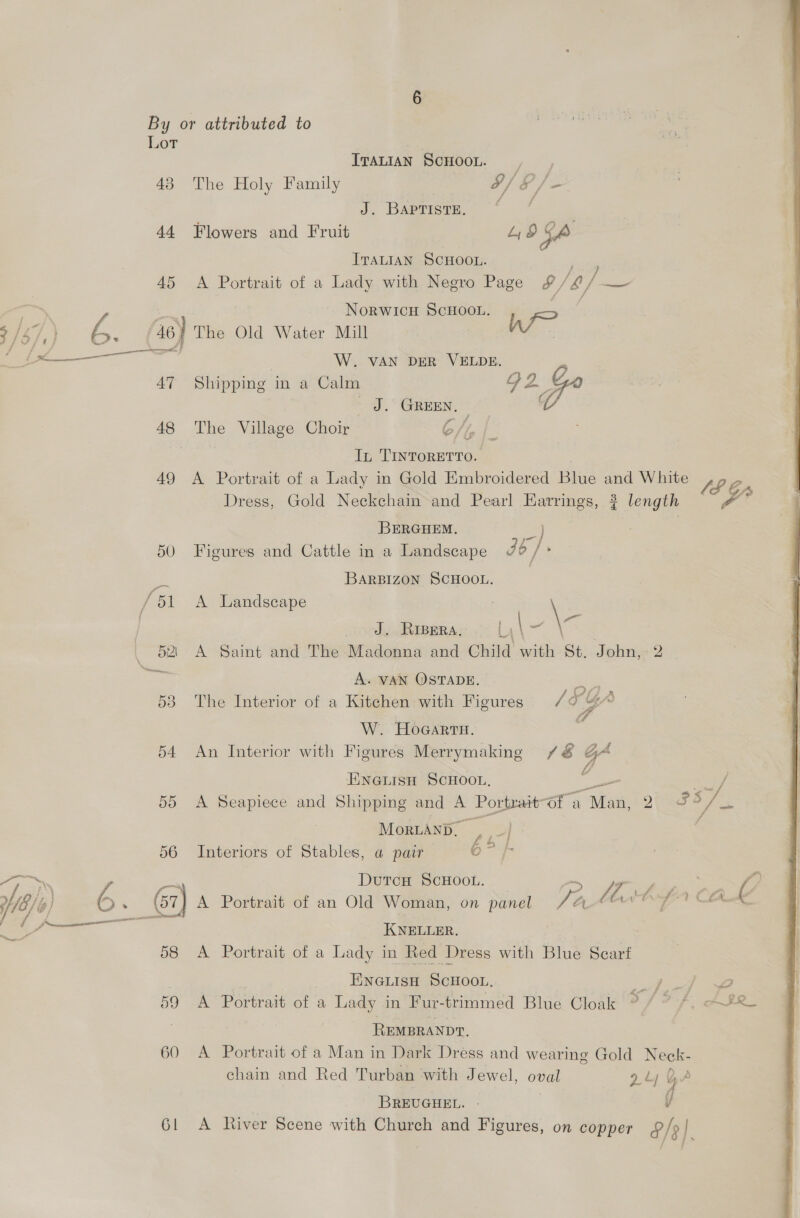 6
By or attributed to
LOT
ITALIAN SCHOOL.
43 The Holy Family 9/9/-
J. BAPTISTE.
44 Flowers and Fruit
ITALIAN SCHOOL.
45 A Portrait of a Lady with Negro Page
NORWICH SCHOOL.
6. 46 The Old Water Mill
W. VAN DER VELDE.
47 Shipping in a Calm 92
J. GREEN.
48 The Village Choir
IL TINTORETTO.
49 A Portrait of a Lady in Gold Embroidered Blue and White
Dress, Gold Neckchain and Pearl Earrings, ¾ length
BERGHEM.
50 Figures and Cattle in a Landscape
BARBIZON SCHOOL.
51 A Landscape
J. RIBERA.
52 A Saint and The Madonna and Child with St. John, 2
A. VAN OSTADE.
53 The Interior of a Kitchen with Figures
W. HOGARTH.
54 An Interior with Figures Merrymaking 18
ENGLISH SCHOOL.
55 A Seapiece and Shipping and A Portrait of a Man, 2 35/-
MORLAND.
56 Interiors of Stables, a pair
DUTCH SCHOOL.
6. 57 A Portrait of an Old Woman, on panel
KNELLER.
58 A Portrait of a Lady in Red Dress with Blue Scarf
ENGLISH SCHOOL.
59 A Portrait of a Lady in Fur-trimmed Blue Cloak
REMBRANDT.
60 A Portrait of a Man in Dark Dress and wearing Gold Neck-
chain and Red Turban with Jewel, oval
BREUGHEL.
61 A River Scene with Church and Figures, on copper